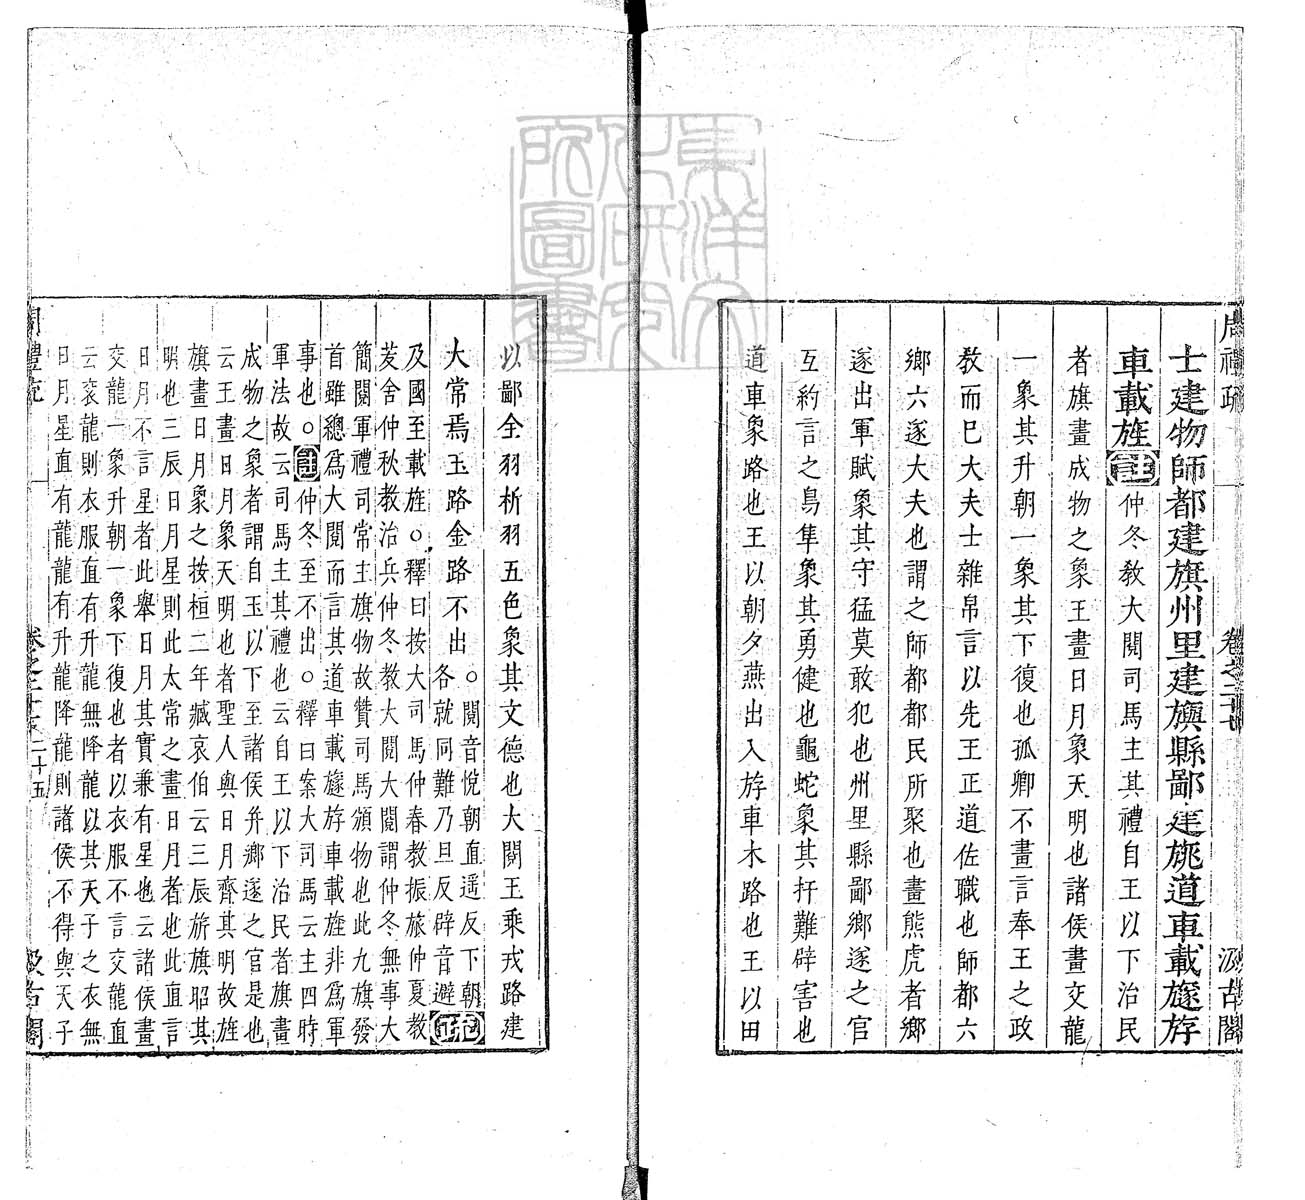 周禮疏 卷之二十七 汲古閣
士建物師都建旗州里建旟縣鄙建旐道車載旞斿
車載旌註仲冬敎大閱司馬主其禮自王以下治民
者旗畫成物之象王畫日月象天明也諸侯畫交龍
一象其升朝一象其下復也孤卿不畫言奉王之政
敎而巳大夫士雜帛言以先王正道佐職也師都六
鄉六遂大夫也謂之師都都民所聚也畫熊虎者鄉
遂出軍賦象其守猛莫敢犯也州里縣鄙鄉遂之官
互約言之鳥隼象其勇健也龜蛇象其扞難辟害也
道車象路也王以朝夕燕出入斿車木路也王以田
以鄙全羽析羽五色象其文德也大閱王乘戎路建
大常焉玉路金路不出○閱音悅朝直遥反下朝各就同難乃旦反辟音避疏
及國至載旌○釋曰按大司馬仲春教振旅仲夏教
茇舍仲秋教治兵仲冬教大閱大閱謂仲冬無事大
簡閱軍禮司常主旗物故贊司馬頒物也此九旗發
首雖總爲大閱而言其道車載旞斿車載旌非爲軍
事也○註仲冬至不出○釋曰案大司馬云主四時
軍法故云司馬主其禮也云自王以下治民者旗畫
成物之象者謂自玉以下至諸侯并鄉遂之官是也
云王畫日月象天明也者聖人與日月齊其明故旌
旗畫日月象之按桓二年臧哀伯云三辰旂旗昭其
明也三辰日月星則此太常之畫日月者也此直言
日月不言星者此舉日月其實兼有星也云諸侯畫
交龍一象升朝一象下復也者以衣服不言交龍直
云衮龍則衣服直有升龍無降龍以其天子之衣無
日月星直有龍龍有升龍降龍則諸侯不得與天子
周禮疏 卷之二十七 二十五 汲古閣
東洋文化研究所圖書